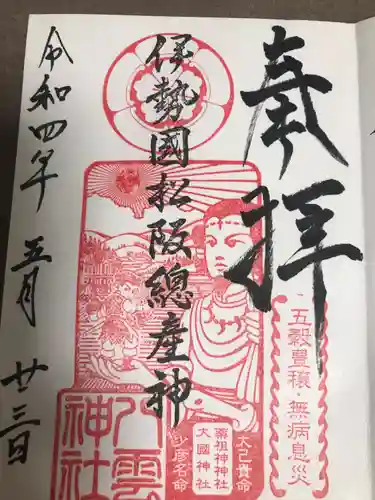 奉拝
伊勢國松阪總産神
令和四年五月廿三日
五穀豊穣・無病息災
大己貴命
薬祖神神社
大國神社
少彦名命
八雲神社